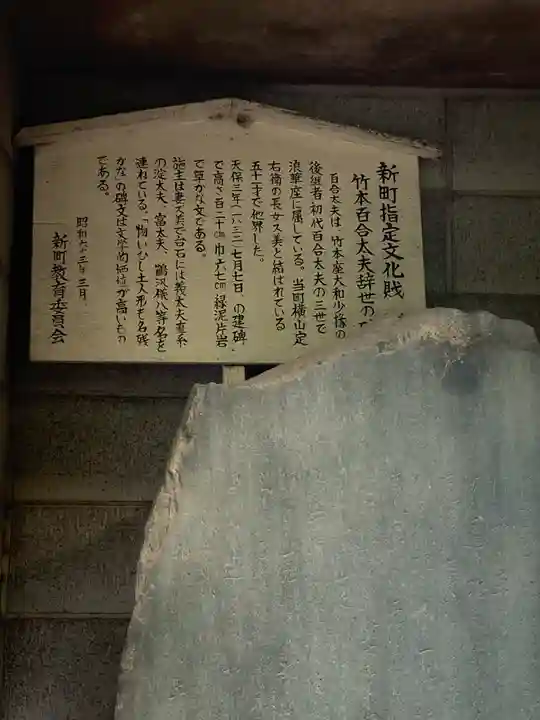 新町指定文化財
竹本百合太夫辞世の
百合太夫は、竹本座大和少掾の
後継者初代百合太夫の三世で
浪華座に属している。当町横山定
右衛の長女ス美と結ばれている
五十一才で他界した。
天保三年(一八三二)七月七日、の建碑、
で高さ一百二十㎝巾六七㎝緑泥片岩
で草かな文である。
施主は妻ス美で台石には義太夫直系
の淀太夫、富太夫、鶴沢様八等名を
連ねている、「物いひし土人形も名残
かな」の碑文は文学的価値が高いもの
である。
昭和六三年三月、
新町教育委員会